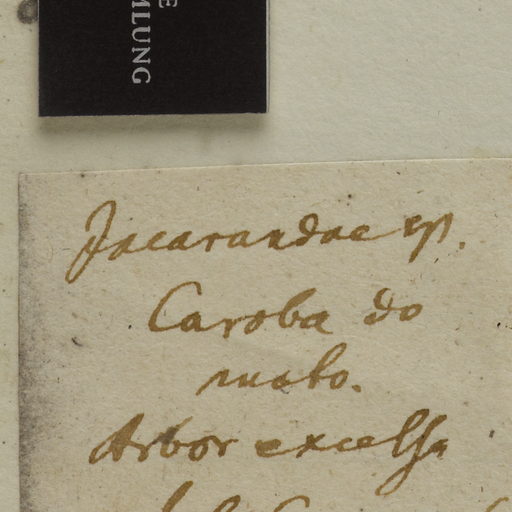 MLUNG
Jacarandae sp.
Caroba do
mato.
Arbor excelsa